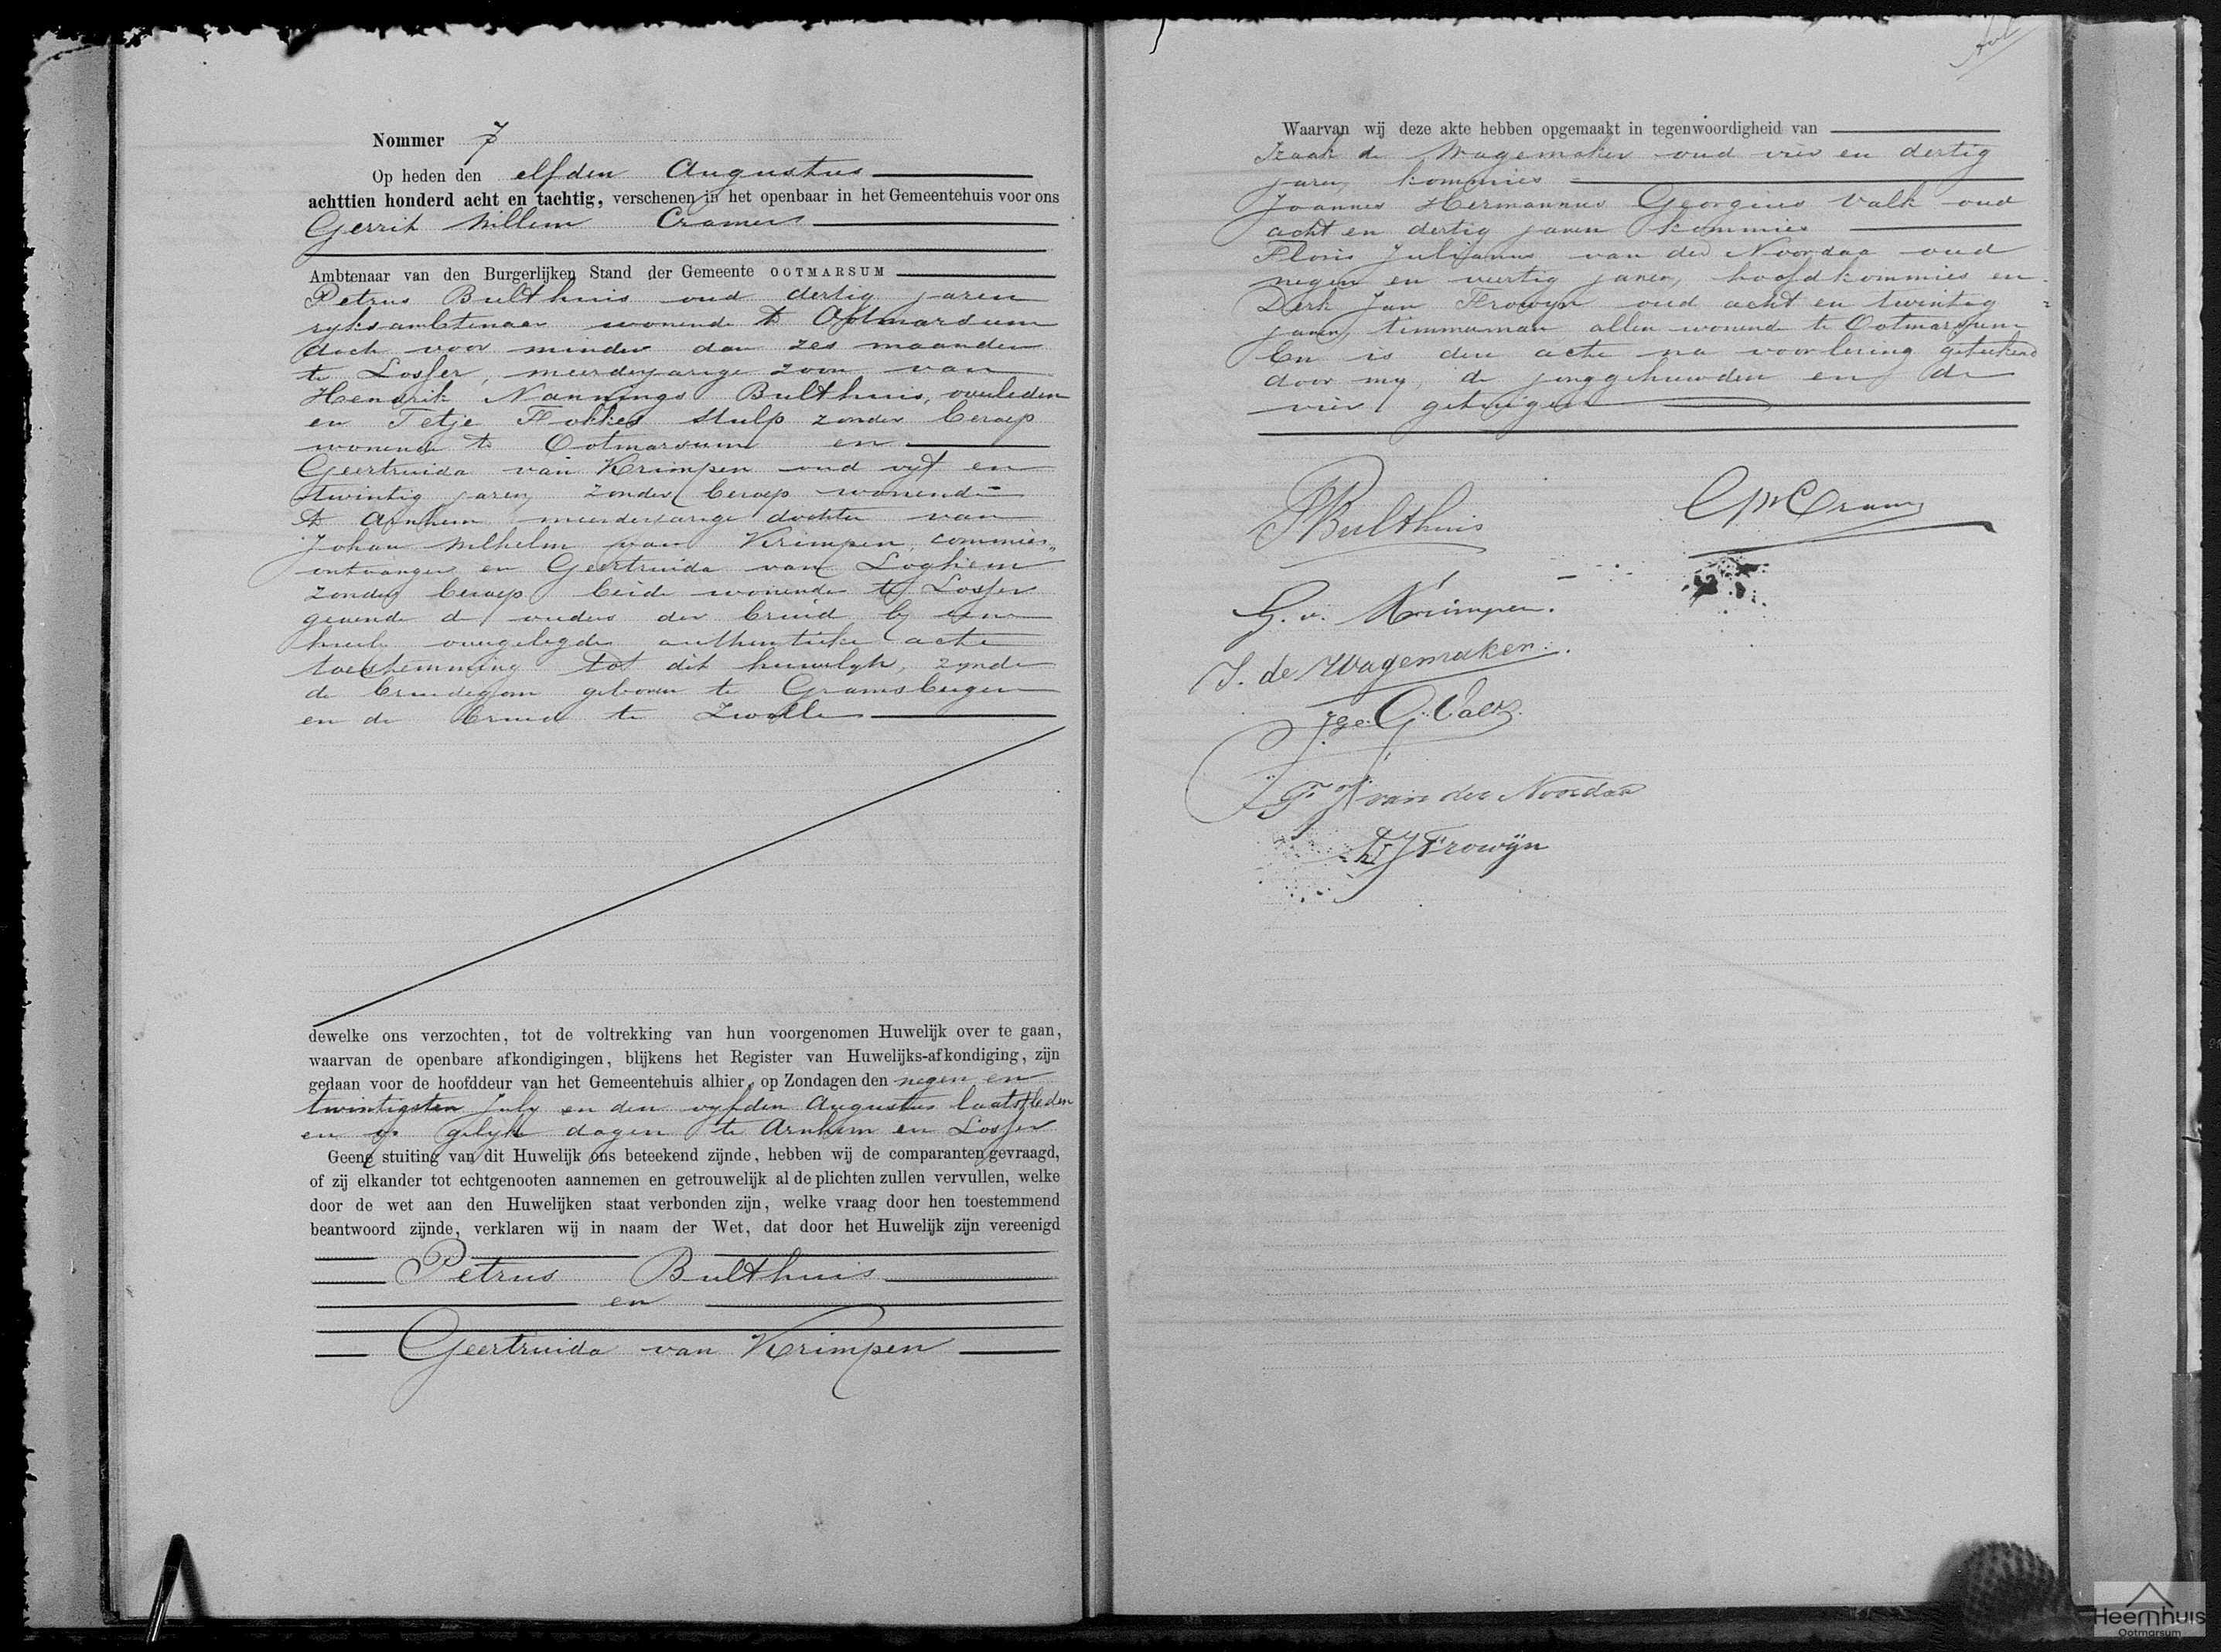 Nommer 7
Op heden den elfden Augustus
achttien honderd acht en tachtig, verschenen in het openbaar in het Gemeentehuis voor ons
Gerrit Willem Cramer
Ambtenaar van den Burgerlijken Stand der Gemeente OOTMARSUM
Petrus Bulthuis oud dertig jaren
ryksambtenaar wonende te Ootmarsum
doch voor minder dan zes maanden
te Losser, meerderjarige zoon van
Hendrik Nannings Bulthuis, overleden
en Tetje Fokkes Stulp zonder beroep
wonende te Ootmarsum en
Geertruida van Krimpen oud vyf en
twintig jaren, zonder beroep wonende
te Arnhem meerderjarige dochter van
Johan Wilhelm van Krimpen, commies
ontvanger en Geertruida van Loghem
zonder beroep beide wonende te Losser
gevende de ouders der bruid by een
hierby overgelegde authentieke acte
toestemming tot dit huwelyk, zynde
de bruidegom geboren te Gramsbergen
en de bruid te Zwolle
dewelke ons verzochten, tot de voltrekking van hun voorgenomen Huwelijk over te gaan,
waarvan de openbare afkondigingen, blijkens het Register van Huwelijks-afkondiging, zijn
gedaan voor de hoofddeur van het Gemeentehuis alhier, op Zondagen den negen en
twintigsten July en den vyfden Augustus laatstleden
en op gelyke dagen te Arnhem en Losser
Geene stuiting van dit Huwelijk ons beteekend zijnde, hebben wij de comparanten gevraagd,
of zij elkander tot echtgenooten aannemen en getrouwelijk al de plichten zullen vervullen, welke
door de wet aan den Huwelijken staat verbonden zijn, welke vraag door hen toestemmend
beantwoord zijnde, verklaren wij in naam der Wet, dat door het Huwelijk zijn vereenigd
Petrus Bulthuis
en
Geertruida van Krimpen
Waarvan wij deze akte hebben opgemaakt in tegenwoordigheid van
Izaak de Wagemaker oud vier en dertig
jaren, kommies
Joannes Hermannus Georgius Valk oud
acht en dertig jaren kommies
Floris Julianus van der Noordaa oud
negen en veertig jaren, hoofdkommies en
Derk Jan Frowyn oud acht en twintig
jaren, timmerman allen wonende te Ootmarsum
En is deze acte na voorlezing geteekend
door my, de jonggehuwden en de
vier getuigen
PBulthuis
GWCramer
G. v. Krimpen.
I. de Wagemaker.
G. Valk.
F J van der Noordaa
DJFrowijn
Heemhuis
Ootmarsum